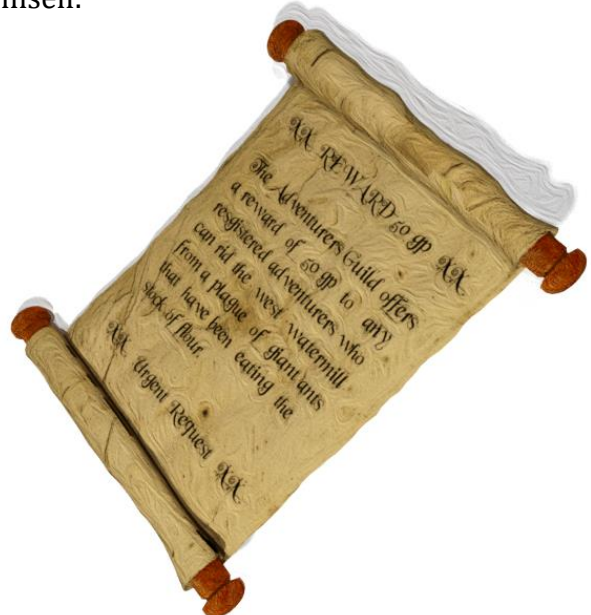 himself.
XX REWARD 50 gp XX
The Adventurers Guild offers
a reward of 50 gp to any
resgistered adventurers who
can rid the west watermill
from a plague of giant ants
that have been eating the
stock of flour.
XX Urgent Request XX